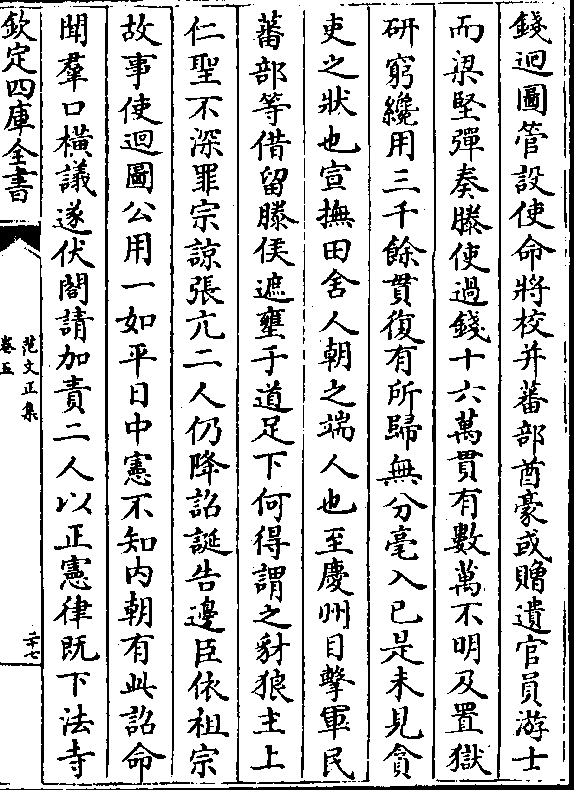 錢迴圖管設使命將校并蕃部酋豪或贈遺官員游士
而梁堅彈奏滕使過錢十六萬貫有數萬不明及置獄
研窮纔用三千餘貫復有所歸無分毫入已是未見貪
吏之狀也宣撫田舍人朝之端人也至慶州目擊軍民
蕃部等借留滕侯遮壅于道足下何得謂之豺狼主上
仁聖不深罪宗諒張亢二人仍降詔誕告邊臣依祖宗
故事使迴圖公用一如平日中憲不知内朝有此詔命
聞羣口橫議遂伏閤請加責二人以正憲律既下法寺
欽定四庫全書
范文正集
卷五
二十七